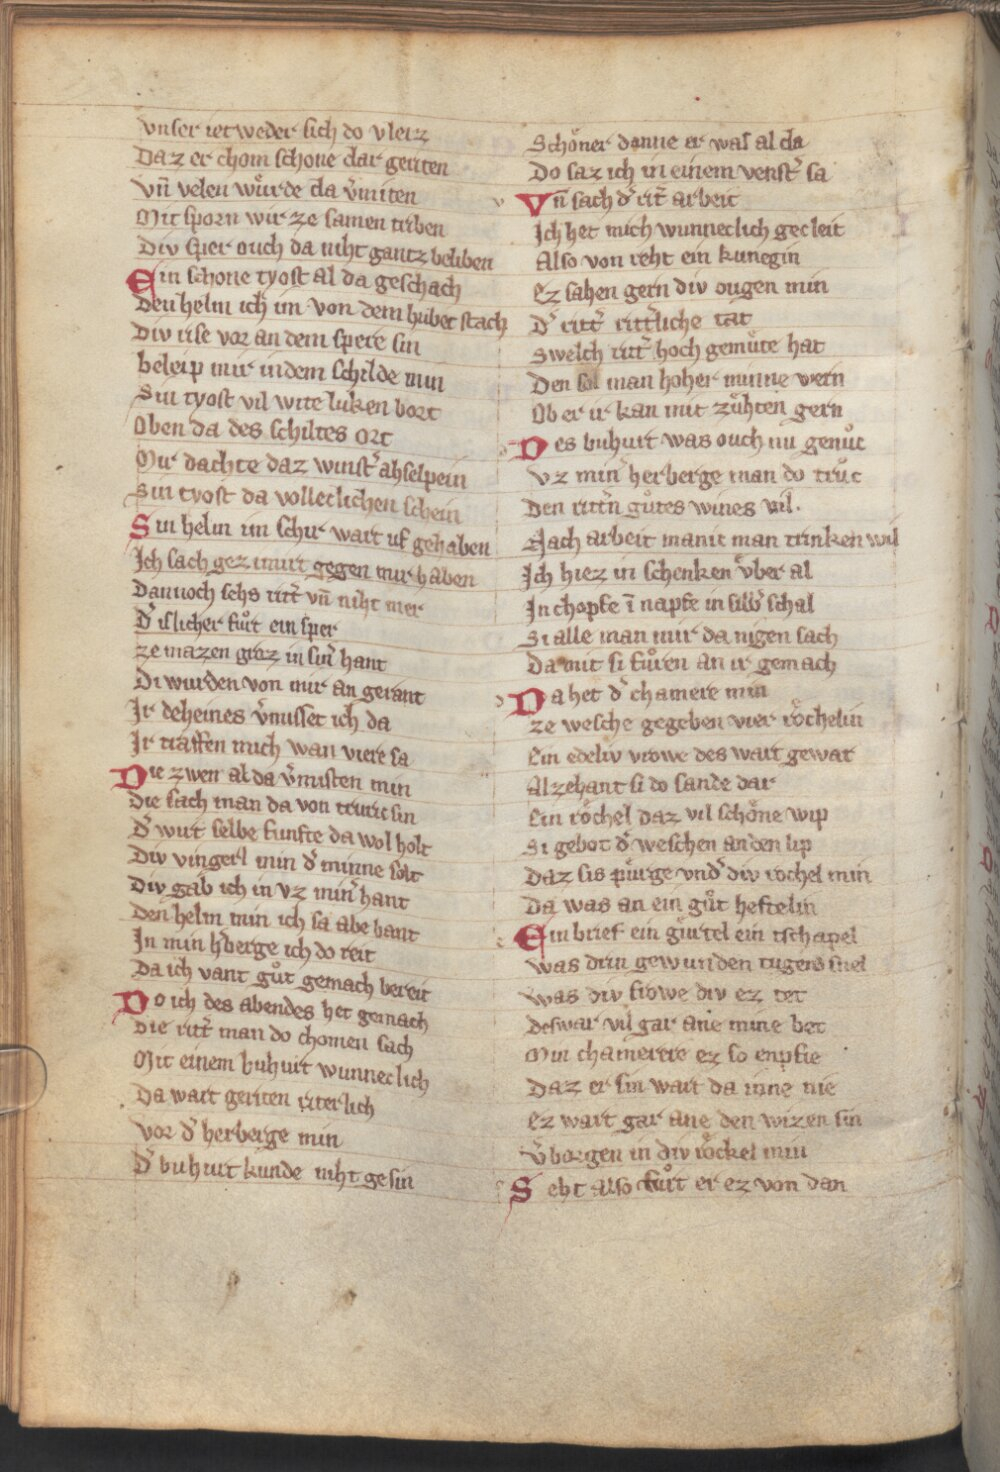 vnser ietweder sich do vleiz
Daz er chom schone dar geriten
Vn̄ velen wuͦrde da v̓miten
Mit sporn wir ze samen triben
Div sper ouch da niht gantz beliben
Ein schone tyost al da geschach
Den helm ich im von dem hubet stach
Div rise vor an dem spere sin
beleip mir in dem schilde min
Sin tyost vil wite luken bort
Oben da des schiltes ort
Mir dachte daz winst̓ ahselpein
Sin tyost da volleclichen schein
Sin helm im schir wart uf gehaben
Ich sach gezimirt gegen mir haben
Dannoch sehs ritt̓ vn̄ niht mer
D̓ islicher fuͦrt ein sper
ze mazen groz in sin̓ hant
Di wurden von mir an gerant
Ir deheines v̓misset ich da
Ir traffen mich wan viere sa
Die zwen al da v̓misten min
Die sach man da von truric sin
D̓ wirt selbe funfte da wol holt
Div vingerl min d̓ minne solt
Div gab ich in vz min̓ hant
Den helm min ich sa abe bant
In min h̓berge ich do reit
Da ich vant guͦt gemach bereit
Do ich des abendes het gemach
Die ritt̓ man do chomen sach
Mit einem buhurt wunneclich
Da wart geriten riterlich
Vor d̓ herberge min
D̓ buhurt kunde niht gesin
Schoͤner danne er was al da
Do saz ich in einem venst̓ sa
Vn̄ sach d̓ rit̓ arbeit
Ich het mich wunneclich gecleit
Also von reht ein kunegin
Ez sahen gern div ougen min
D̓ ritt̓ ritt̓liche tat
Swelch ritt̓ hoch gemuͤte hat
Den sol man hoher minne wern
Ob er ir kan mit zuͤhten gern
Des buhurt was ouch nu genuͦc
Vz min̓ herberge man do truͦc
Den ritt̓n guͦtes wines vil.
Nach arbeit manic man trinken wil
Ich hiez in schenken v̓ber al
In chopfe ī napfe in silb̓ schal
Si alle man mir da nigen sach
Da mit si fuͦren an ir gemach
Da het d̓ chamere min
ze wesche gegeben vier roͤchelin
Ein edeliv vrowe des wart gewar
Alzehant si do sande dar
Ein roͤchel daz vil schoͤne wip
Si gebot d̓ weschen an den lip
Daz sis puͤrge vnd̓ div rochel min
Da was an ein guͦt heftelin
Ein brief ein guͤrtel ein tschapel
Was drin gewunden tugens snel
Was div frowe div ez tet
Deswar vil gar ane mine bet
Min chamerere ez so enpfie
Daz er sin wart da inne nie
Ez wart gar ane den wizen sin
V̓borgen in div roͤckel min
Seht also fuͦrt er ez von dan